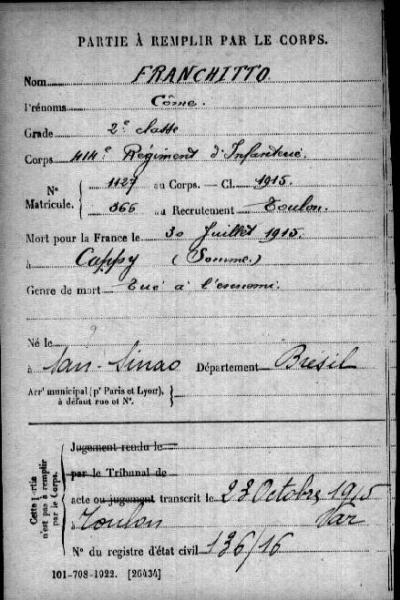 PARTIE À REMPLIR PAR LE CORPS.
Nom FRANCHITTO
Prénoms Côme.
Grade 2e classe
Corps 414e Régiment d'Infanterie.
N° Matricule. { 1127 au Corps. — Cl. 1915.
366 au Recrutement Toulon.
Mort pour la France le 30 Juillet 1915.
à Cappy (Somme.)
Genre de mort Tué à l'ennemi.
Né le
à San- Département Brésil
Arrt municipal (pr Paris et Lyon), à défaut rue et N°. }
Cette partie n'est pas à remplir par le Corps. {
Jugement rendu le
par le Tribunal de
acte ou jugement transcrit le 23 Octobre 1915
à Toulon Var
N° du registre d'état civil 136/16
101-708-1922. [26434]